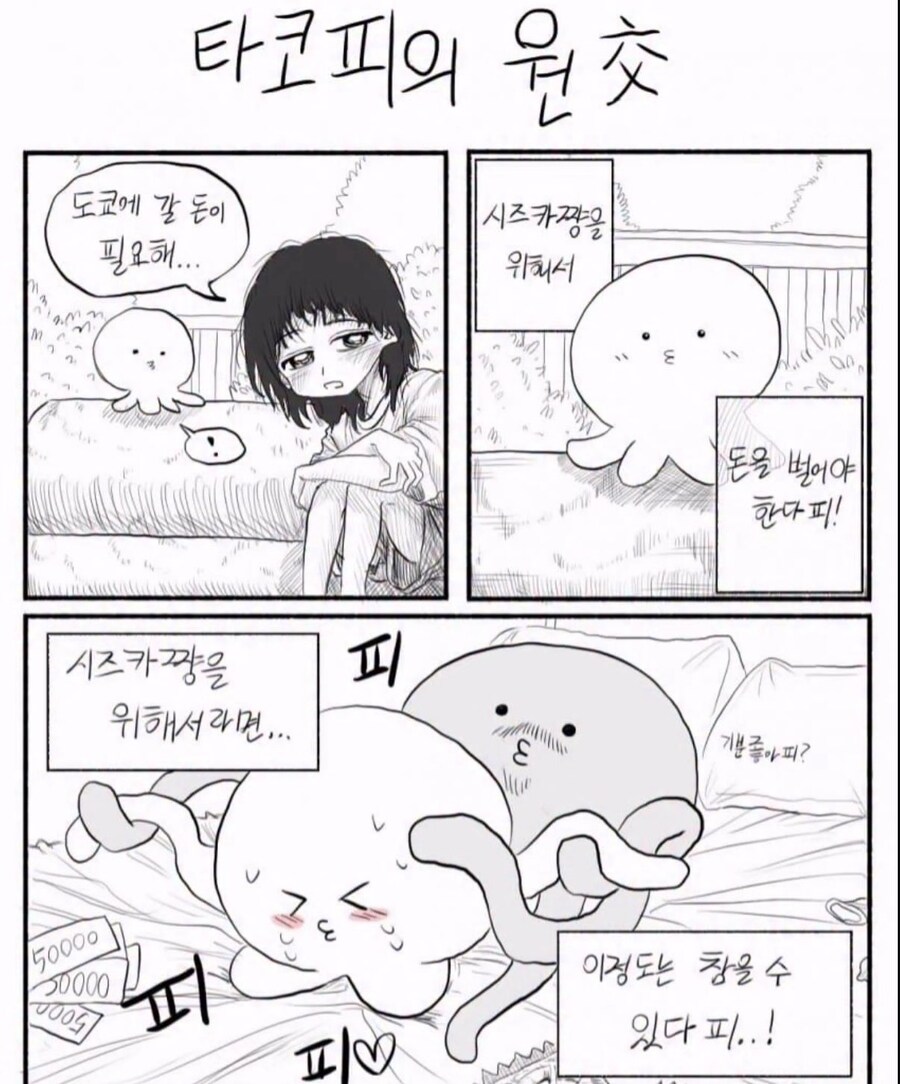 타코피의 원交
도쿄에 갈 돈이
필요해...
!
시즈카쨩을
위해서
돈을 벌어야
한다 피!
시즈카쨩을
위해서라면...
피
기분좋아피?
50000
50000
5000
피
피♡
이정도는 참을 수
있다 피..!